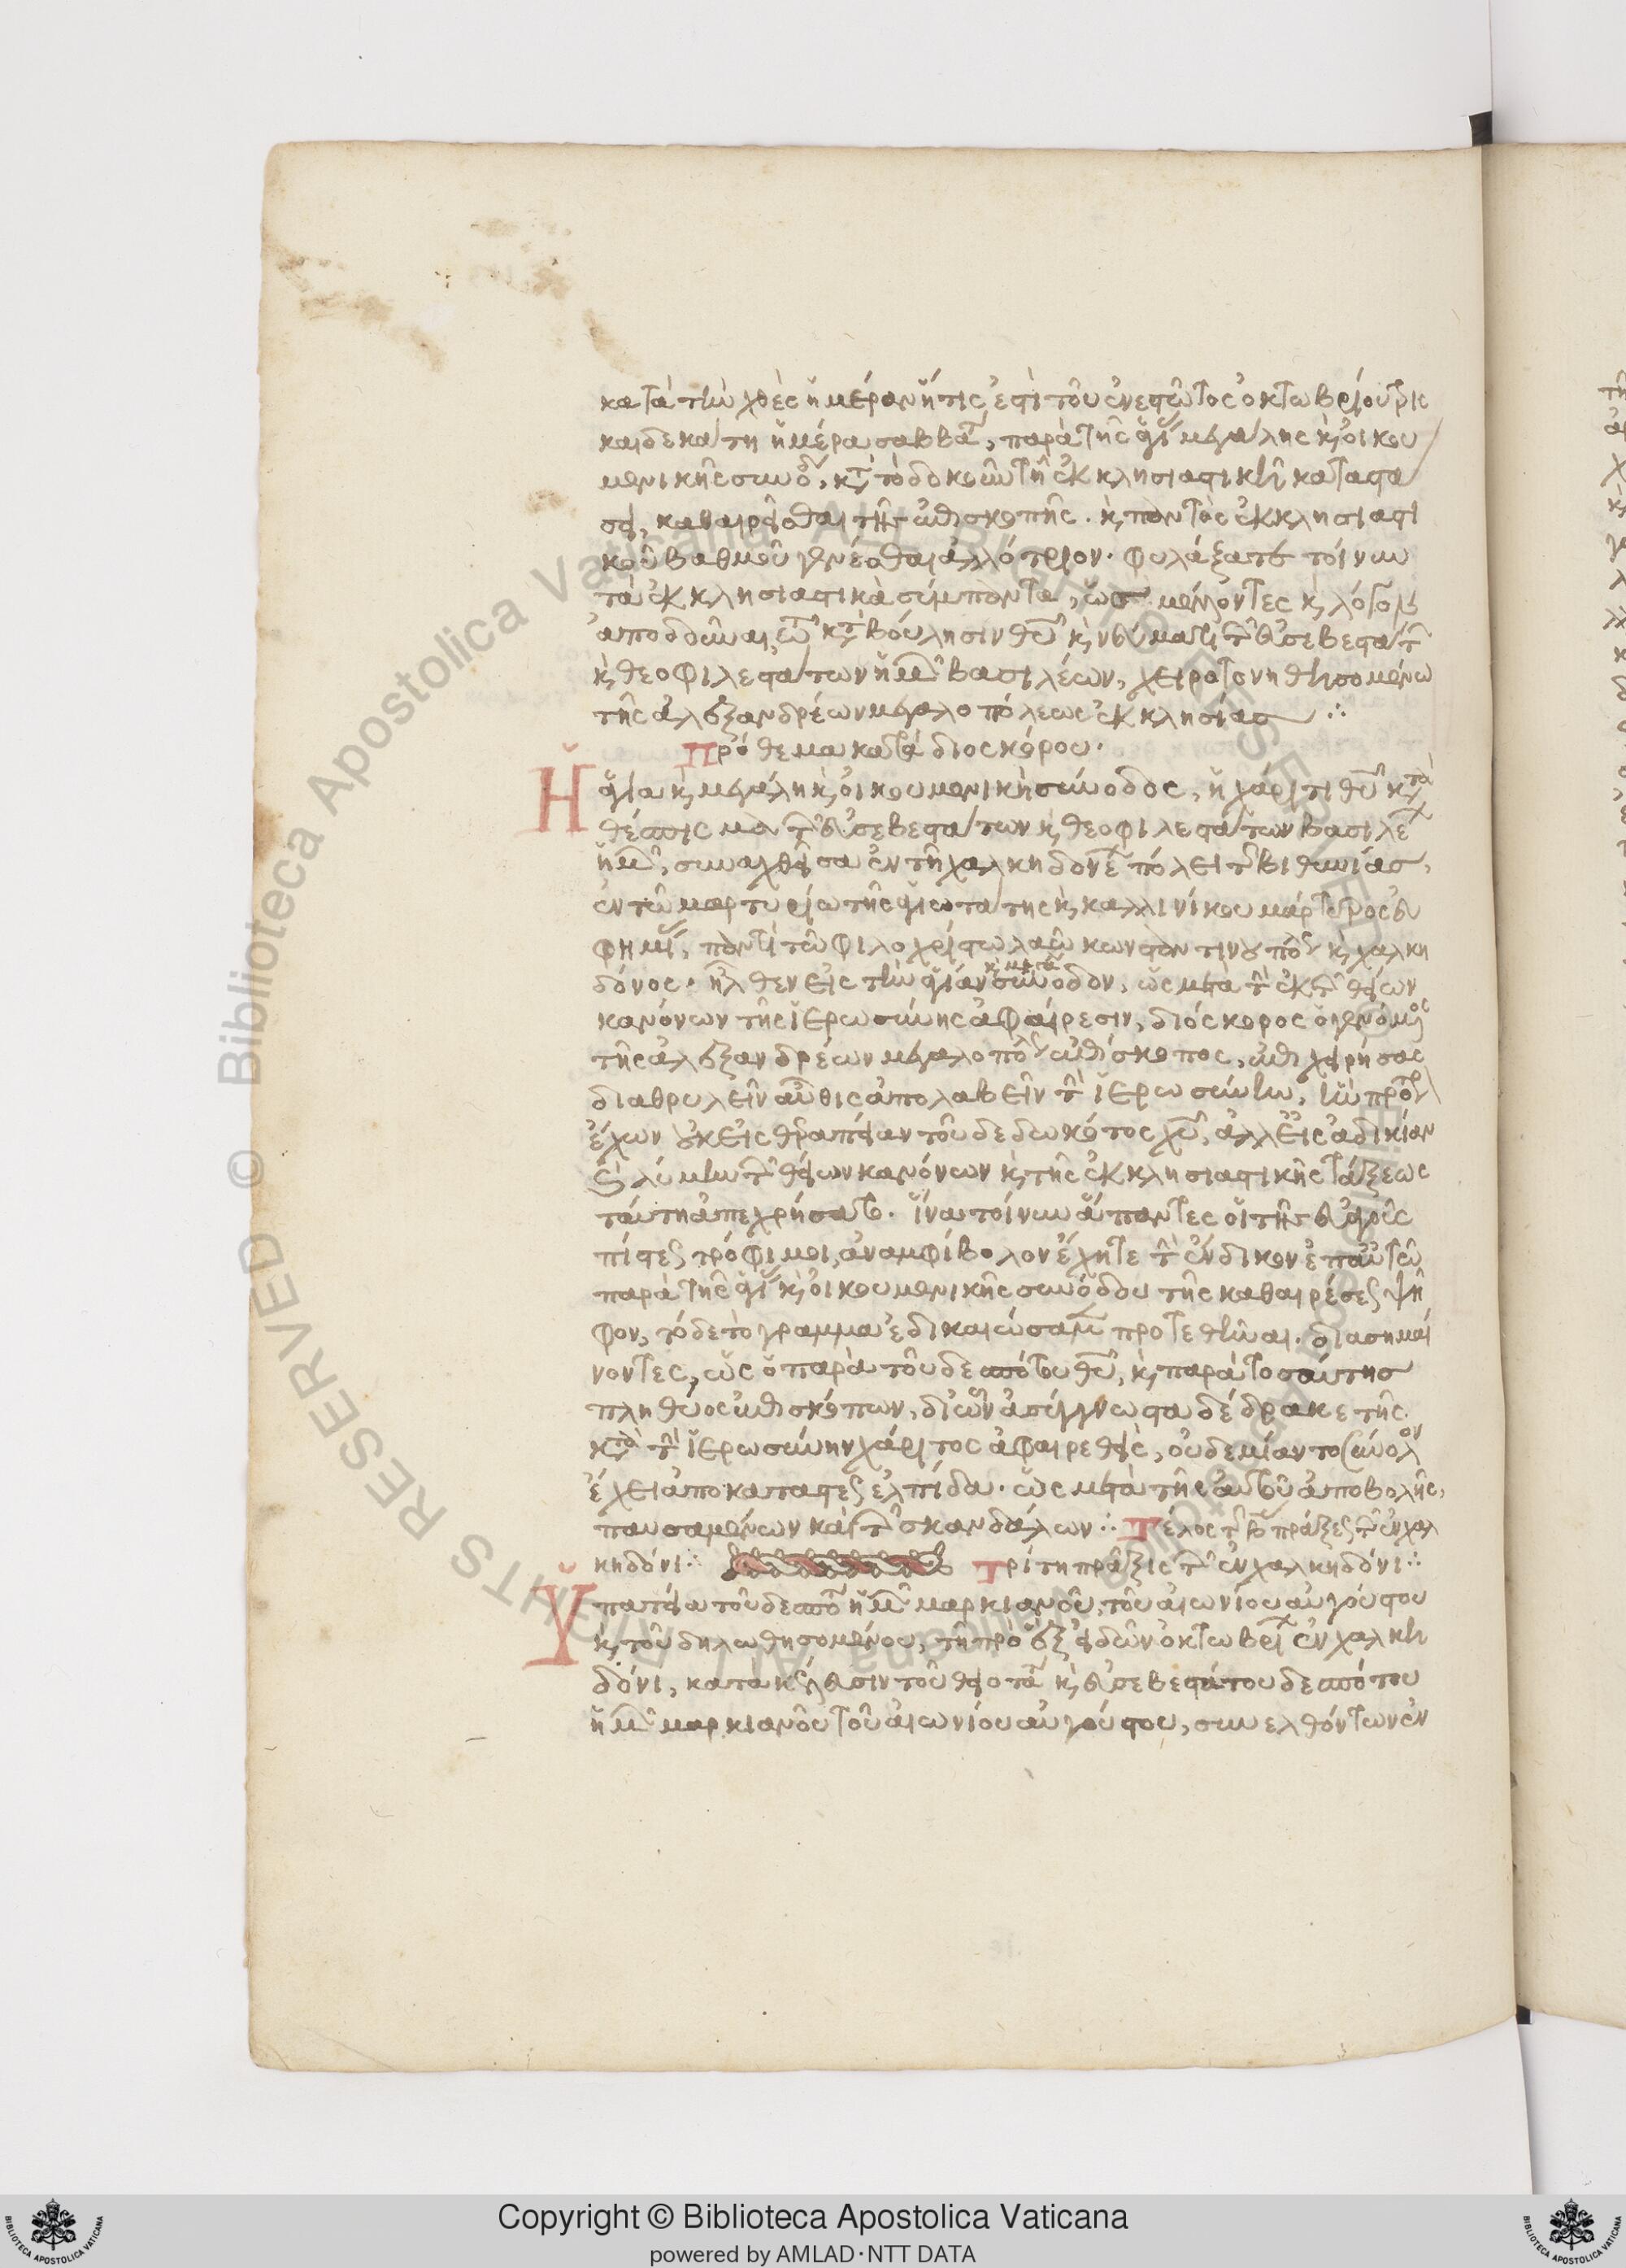 κατὰ τὴν χθὲς ἡμέραν ἥτις ἐστὶ τοῦ ἐνεστῶτος ὀκτωβρίου τρις
καιδεκάτη ἡμέρα σαββάτ, παρὰ τῆς ἁγί μεγάλης κ οἰκου
μενικῆς συνόδ, κτ τὸ δοκοῦν τῆ ἐκκλησιαστικῆ καταστά
σει, καθαιρεῖσθαι τῆς ἐπισκοπῆς. κ παντὸς ἐκκλησιαστι
κοῦ βαθμοῦ γενέσθαι ἀλλότριον. φυλάξατε τοίνυν
τὰ ἐκκλησιαστικὰ σύμπαντα, ὡς μέλλοντες κ λόγους
ἀποδοῦναι, κτ βούλησιν θυ κ νεύματι τῶν εὐσεβεστάτ
κ θεοφιλεστάτων ἡμ βασιλέων, χειροτονηθησομένω
τῆς ἀλεξανδρέων μεγαλοπόλεως ἐκκλησίας ∴
Πρόθεμα κατὰ διοσκόρου.
Ἡ ἁγία κ μεγάλη κ οἰκουμενικὴ σύνοδος, ἡ χάριτι θυ κτὰ
θέσπισμα τ εὐσεβεστάτων κ θεοφιλεστάτων βασιλέ
ἡμ, συναχθεῖσα ἐν τῆ χαλκηδονέ πόλει τ βιθυνίας,
ἐν τῶ μαρτυρίω τῆς ἁγιωτάτης κ καλλινίκου μάρτυρος εὐ
φημί, παντὶ τῶ φιλοχρίστω λαῶ κωνσταντινουπόλ κ χαλκη
δόνος. ἦλθεν εἰς τὴν ἁγίαν κ μεγά σύνοδον, ὡς μετὰ τὴν ἐκ τ θείων
κανόνων τῆς ἱερωσύνης ἀφαίρεσιν, διόσκορος ὁ γενόμος
τῆς ἀλεξανδρέων μεγαλοπόλ ἐπίσκοπος, ἐπιχειρήσας
διαθρυλεῖν αὖθις ἀπολαβεῖν τὴν ἱερωσύνην, ἣν πρότ
ἔχων οὐκ εἰς θεραπείαν τοῦ δεδωκότος χυ, ἀλλ εἰς ἀδικίαν
κ λύμην τ θείων κανόνων κ τῆς ἐκκλησιαστικῆς τάξεως
ταύτη ἀπεχρήσατο. ἵνα τοίνυν ἅπαντες οἱ τῆς εὐαγοῦς
πίστεως τρόφιμοι, ἀναμφίβολον ἔχητε τὴν ἔνδικον ἐπ αὐτῶ
παρὰ τῆς ἁγί κ οἰκουμενικῆς συνόδου τῆς καθαιρέσεως ψῆ
φον, τόδε τὸ γράμμα ἐδικαιώσαμ προτεθῆναι. διασημαί
νοντες, ὡς ὁ παρὰ τοῦ δεσπότου θυ, κ παρὰ τοσαύτης
πληθύος ἐπισκόπων, δι ὧν ἀσύγγνωστα δέδρακε τῆς
κτὰ τὴν ἱερωσύνην χάριτος ἀφαιρεθεὶς, οὐδεμίαν τοσύνολον
ἔχει ἀποκαταστάσεως ἐλπίδα. ὡς μετὰ τῆς αὐτοῦ ἀποβολῆς,
παυσαμένων κὰ τ σκανδάλων ∴ Τέλος τ β πράξεως τ ἐν χαλ
κηδόνι ∴ Τρίτη πρᾶξις τ ἐν χαλκηδόνι ∴
Ὑπατεία τοῦ δεσπό ἡμ μαρκιανοῦ, τοῦ αἰωνίου αὐγούστου
κ τοῦ δηλωθησομένου, τῆ πρὸ γ εἰδῶν ὀκτωβρί ἐν χαλκη
δόνι, κατὰ κέλευσιν τοῦ θειοτά κ εὐσεβεστάτου δεσπότου
ἡμ μαρκιανοῦ τοῦ αἰωνίου αὐγούστου, συνελθόντων ἐν
Copyright © Biblioteca Apostolica Vaticana
powered by AMLAD·NTT DATA